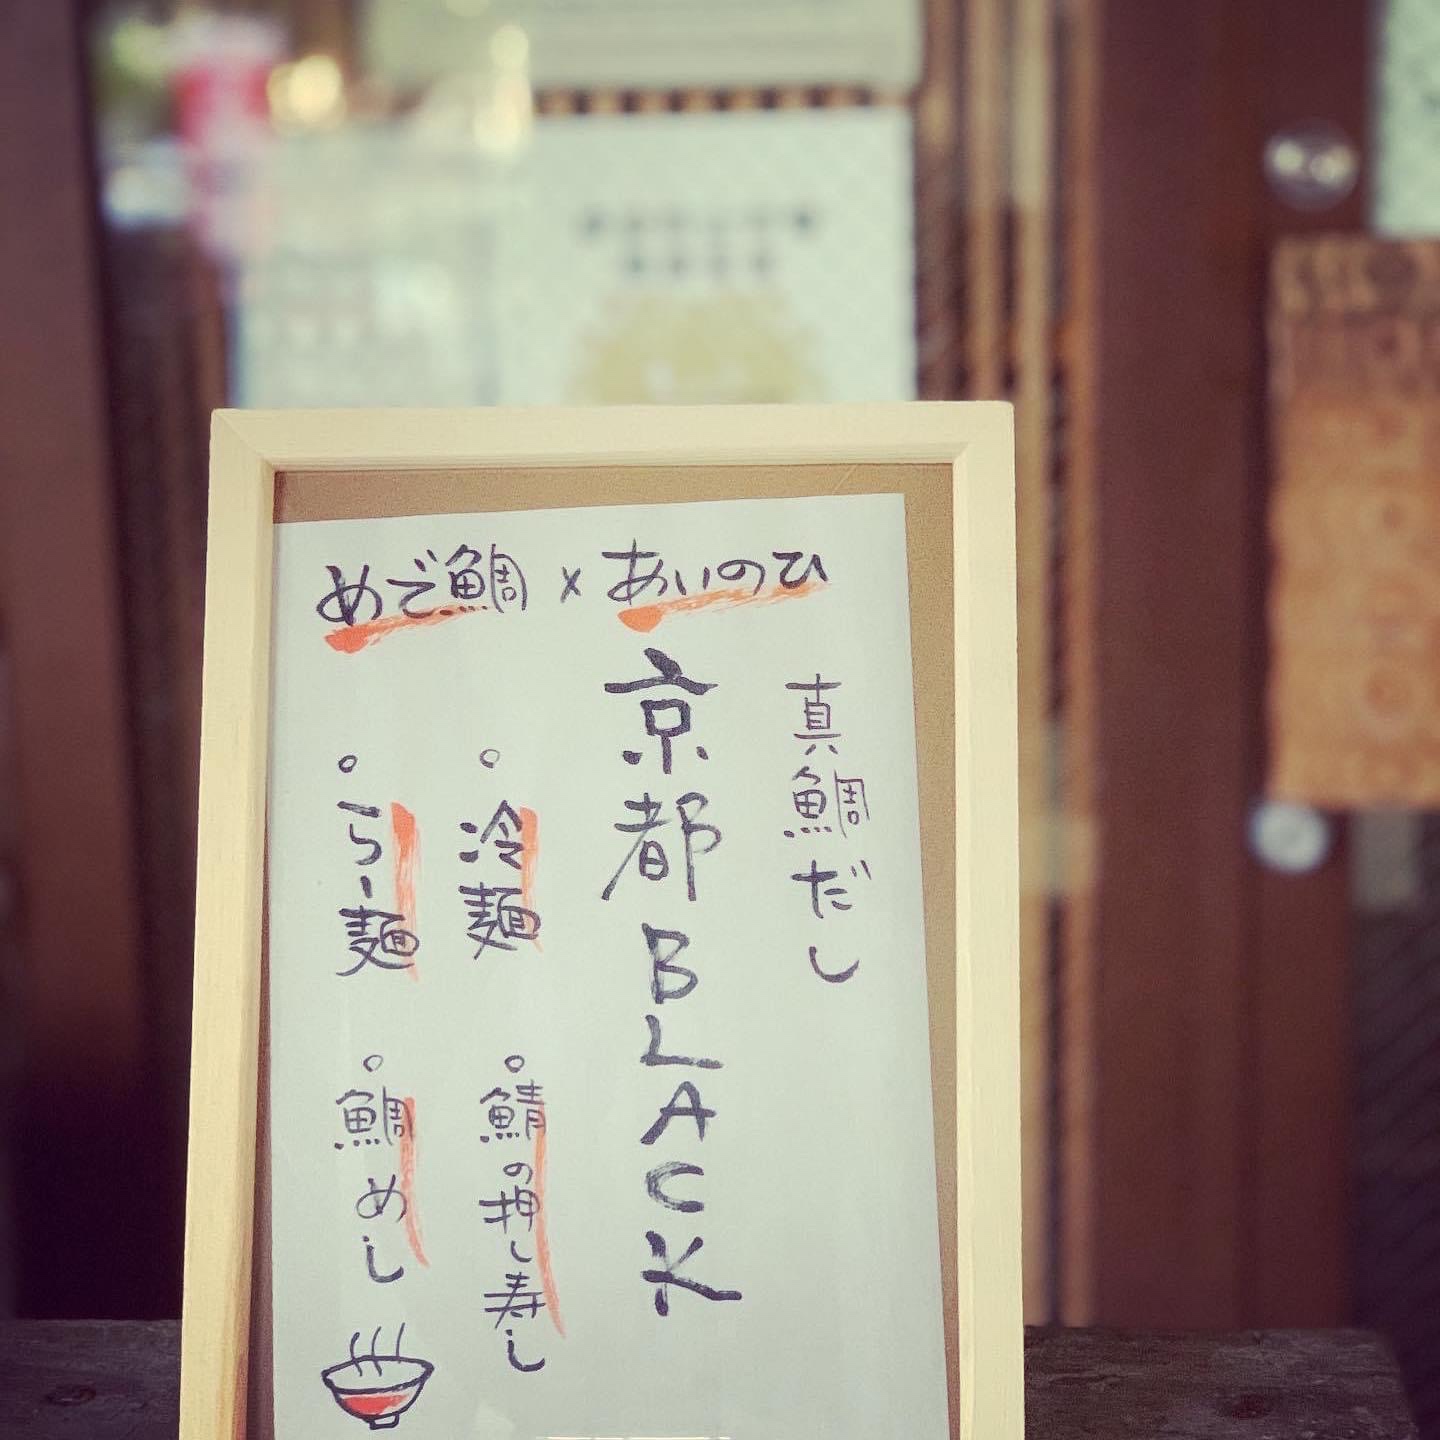 めで鯛×あいのひ
真鯛だし
京都BLACK
。冷麺
。鯖の押し寿し
。らー麺
。鯛めし